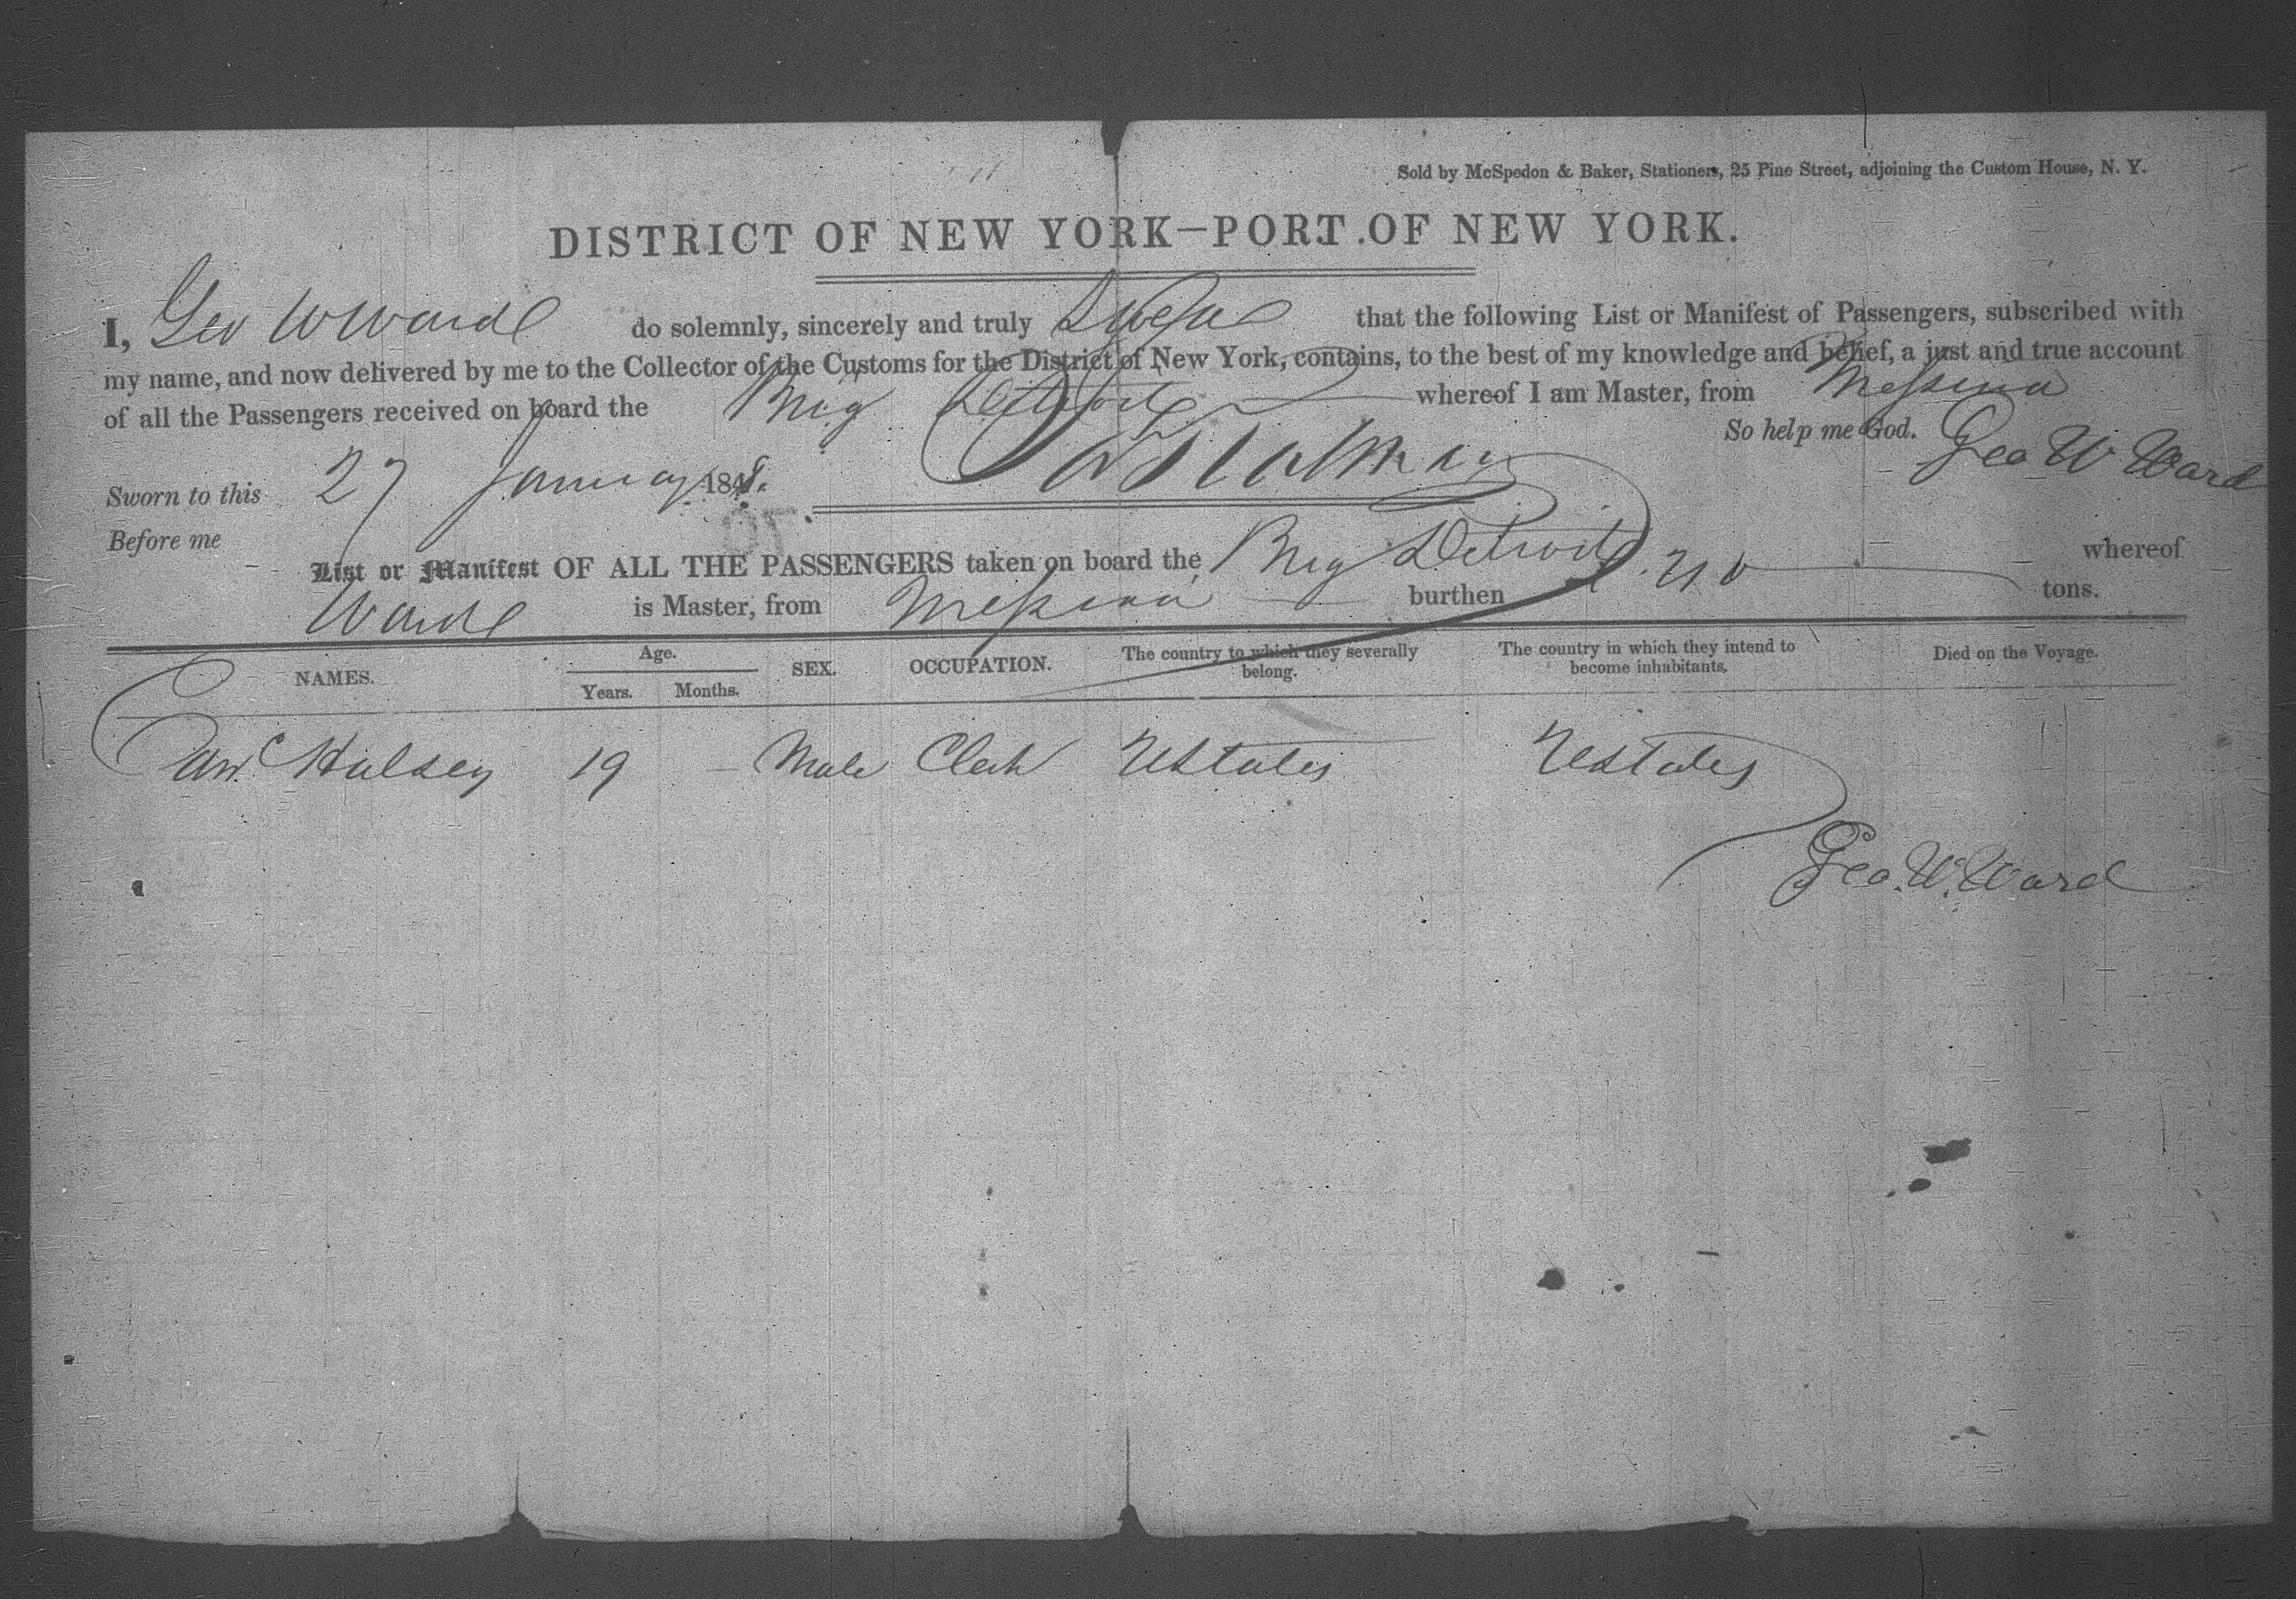 Sold by McSpedon & Baker, Stationers, 25 Pine Street, adjoining the Custom House, N. Y.
DISTRICT OF NEW YORK—PORT OF NEW YORK.
I, Geo W Ward do solemnly, sincerely and truly Swear that the following List or Manifest of Passengers, subscribed with
my name, and now delivered by me to the Collector of the Customs for the District of New York, contains, to the best of my knowledge and belief, a just and true account
of all the Passengers received on board the Brig Detroit whereof I am Master, from Messina
So help me God. Geo W Ward
Sworn to this 27 January 1848.
Before me
List or Manifest OF ALL THE PASSENGERS taken on board the Brig Detroit whereof
Ward is Master, from Messina burthen tons.
NAMES. Age. Years. Months. SEX. OCCUPATION. The country to which they severally belong. The country in which they intend to become inhabitants. Died on the Voyage.
Halsey 19 — Male Clerk UStates UStates
Geo. W. Ward